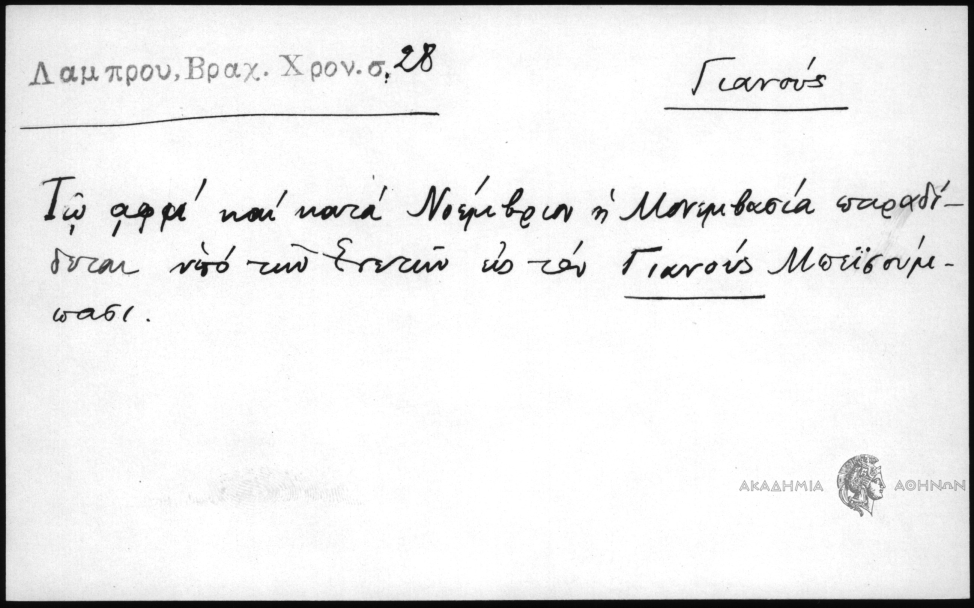 Λαμπρου, Βραχ. Χρον. σ. 28
Γιανούς
Τῷ ͵αφμ΄ καί κατά Νοέμβριον ἡ Μονεμβασία παραδί-
δεται ὑπό τῶν Ενετῶν εἰς τόν Γιανούς Μπεϊσούμ-
πασι.
ΑΚΑΔΗΜΙΑ ΑΘΗΝΩΝ